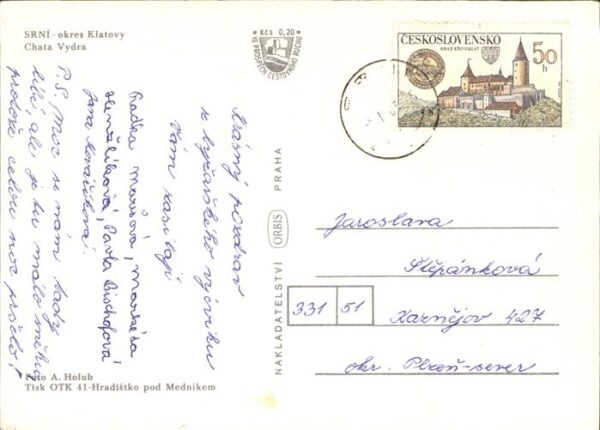 SRNÍ - okres Klatovy
Chata Vydra
Kčs 0,20
VE PROSPĚCH CESTOVNÍHO RUCHU
ČESKOSLOVENSKO
HRAD KŘIVOKLÁT
50
h
Krásný pozdrav
z lyžařského výcviku
Vám zasílají
Radka Marešová, Markéta
Henžlíková, Pavla Bischofová
Jana Kovaříková.
P.S. Moc se nám tady
líbí, ale je tu málo sněhu
protože celou noc pršelo!
NAKLADATELSTVÍ ORBIS PRAHA
Jaroslava
Štěpánková
331 51
Kaznějov 427
okr. Plzeň-sever
Foto A. Holub
Tisk OTK 41-Hradištko pod Medníkem